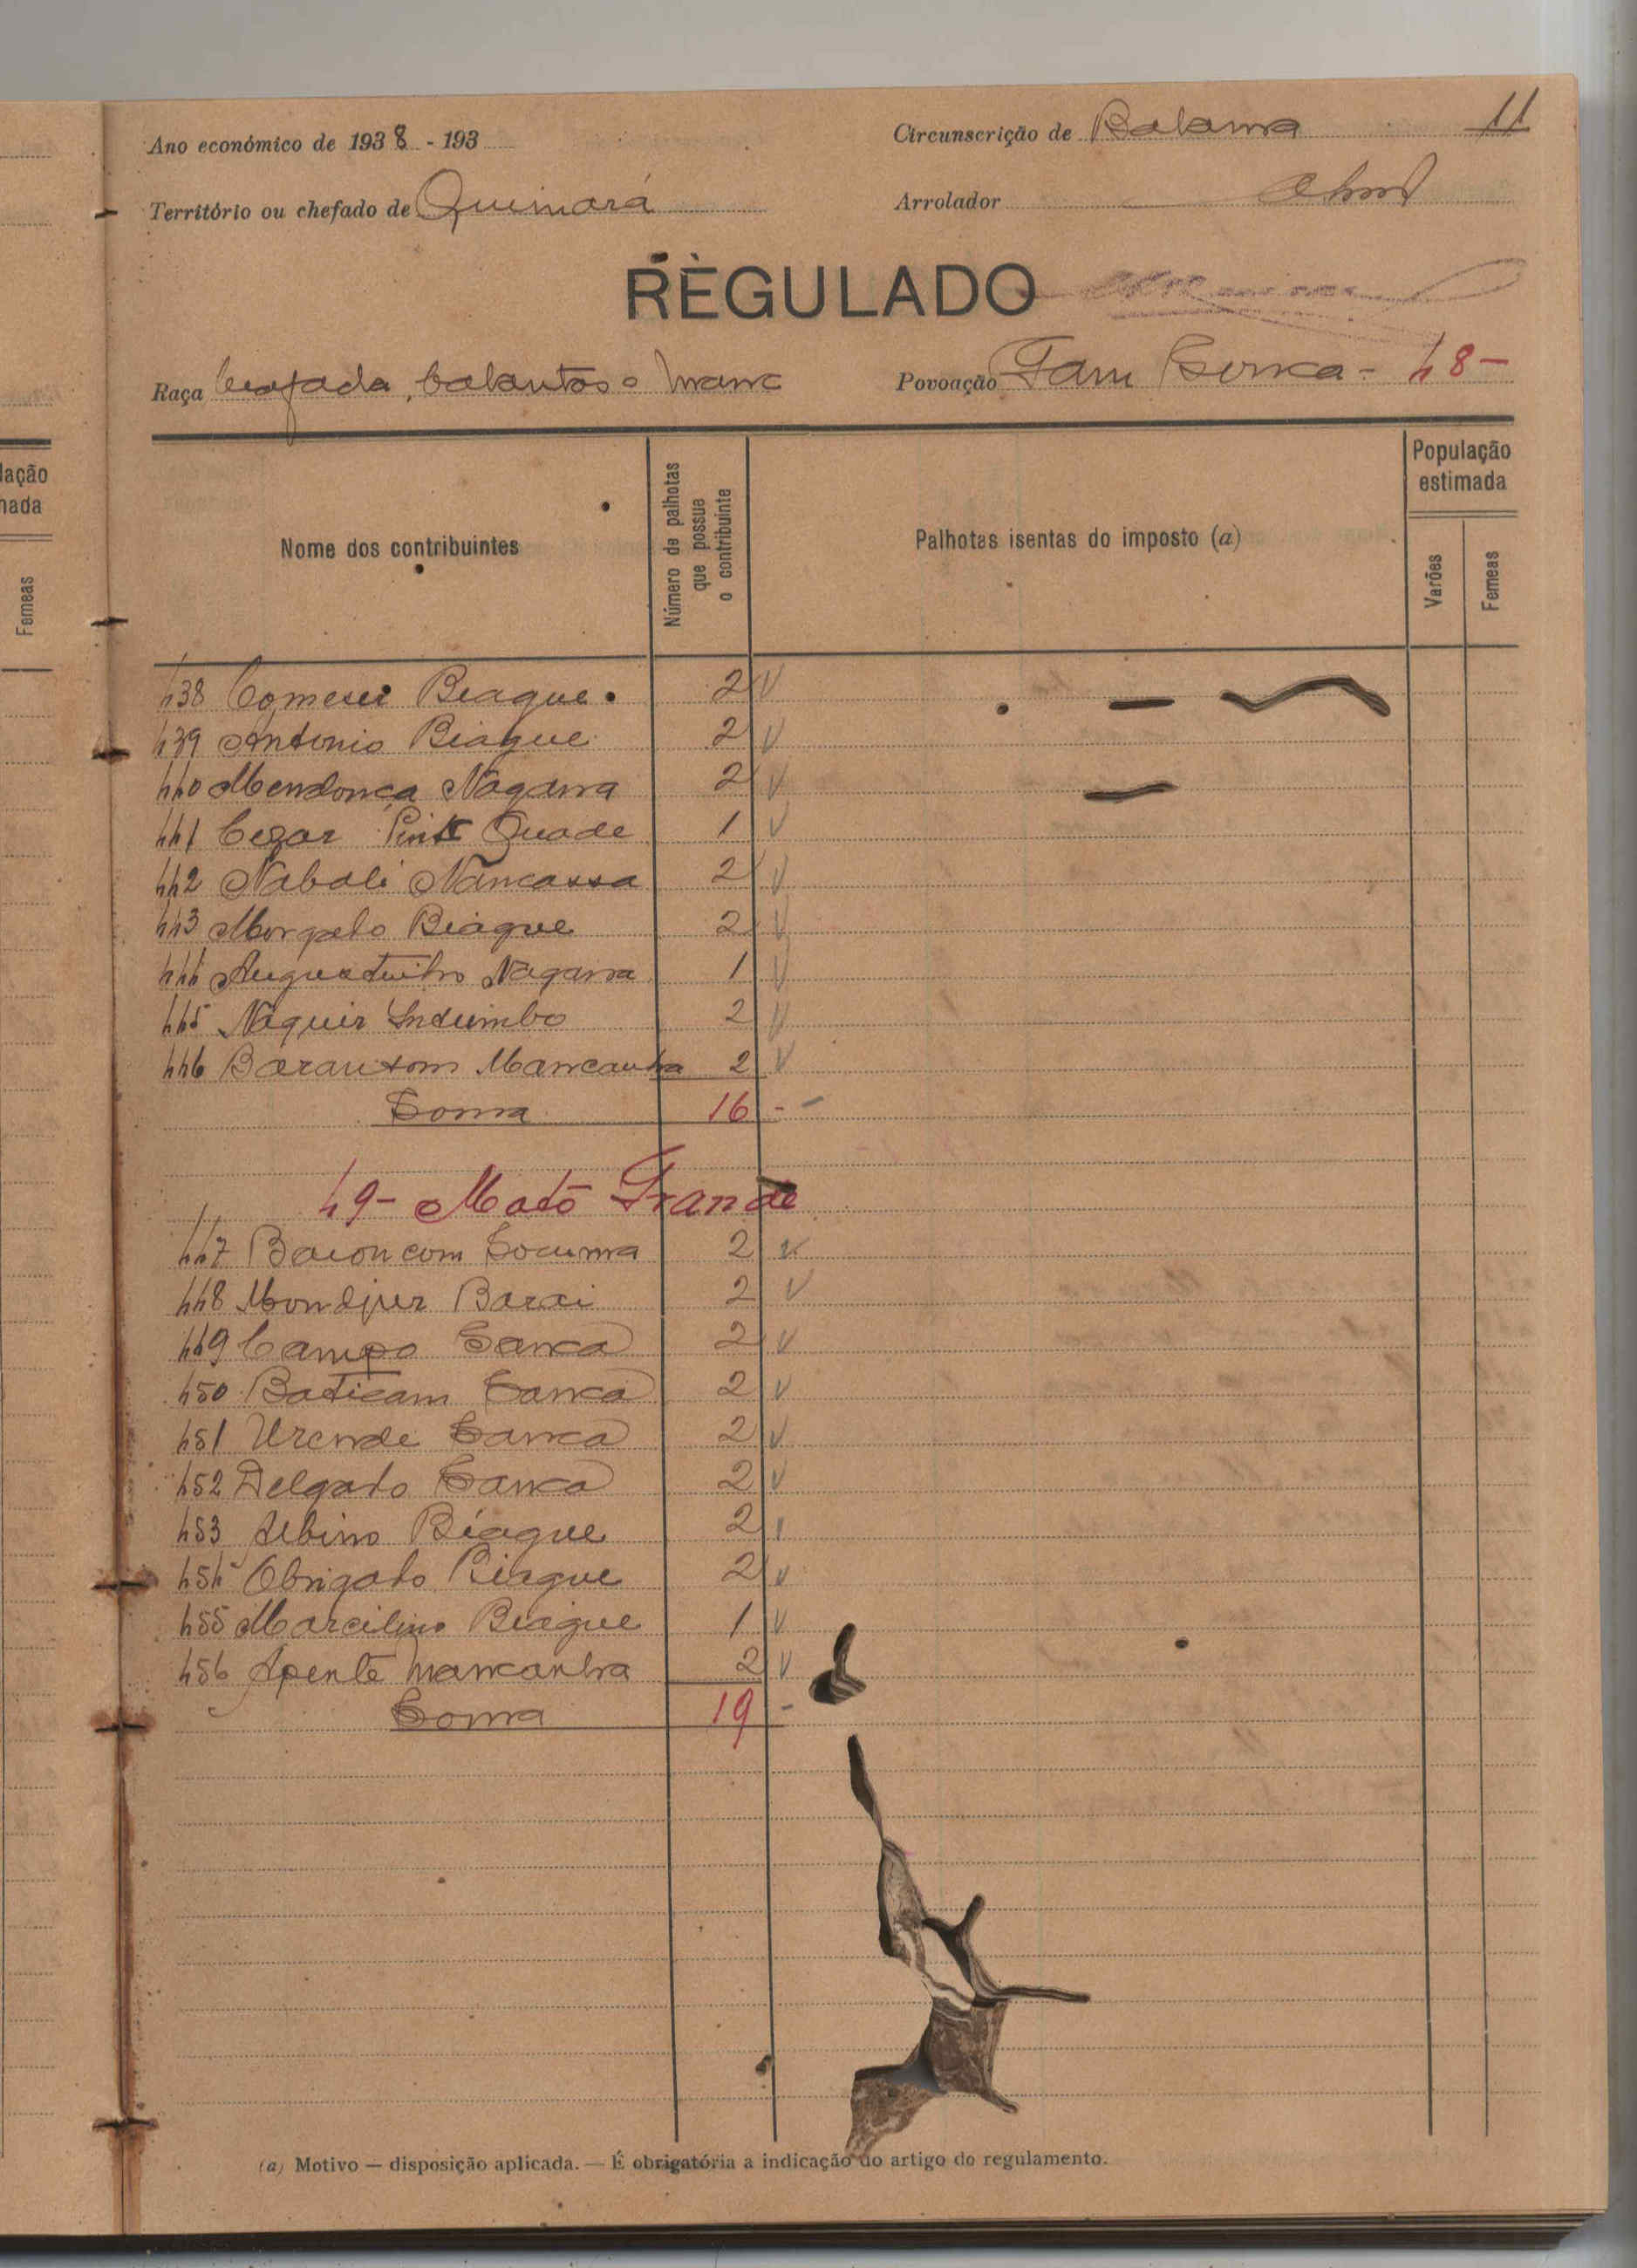 11
Ano económico de 1938 - 193
Circunscrição de Bolama
Território ou chefado de Quinará
Arrolador
REGULADO
Raça beafada, balantas e manc
Povoação Tam 48-
Nome dos contribuintes
Número de palhotas que possue o contribuinte
Palhotas isentas do imposto (a)
População estimada
Varões
Femeas
438 Biague. 2 V
439 Antonio Biague 2 V
440 Mendonça Nagana 2 V
441 Cezar Quade 1 V
442 Nabali Nancassa 2 V
443 Morgado Biague 2 V
444 Augustinho Nagana 1 V
445 Naquir Indimbo 2 V
446 Mancanha 2 V
Soma 16 -
49- Mato Grande
447 2 V
448 Mondjur Barai 2 V
449 Campo Sanca 2 V
450 Baticam Sanca 2 V
451 Urende Sanca 2 V
452 Delgado Sanca 2 V
453 Albino Biague 2
454 Obrigado Biague 2 V
455 Marcilino Biague 1 V
456 Apente Mancanha 2 V
Soma 19 -
(a) Motivo — disposição aplicada. — É obrigatória a indicação do artigo do regulamento.
lação
nada
Femeas